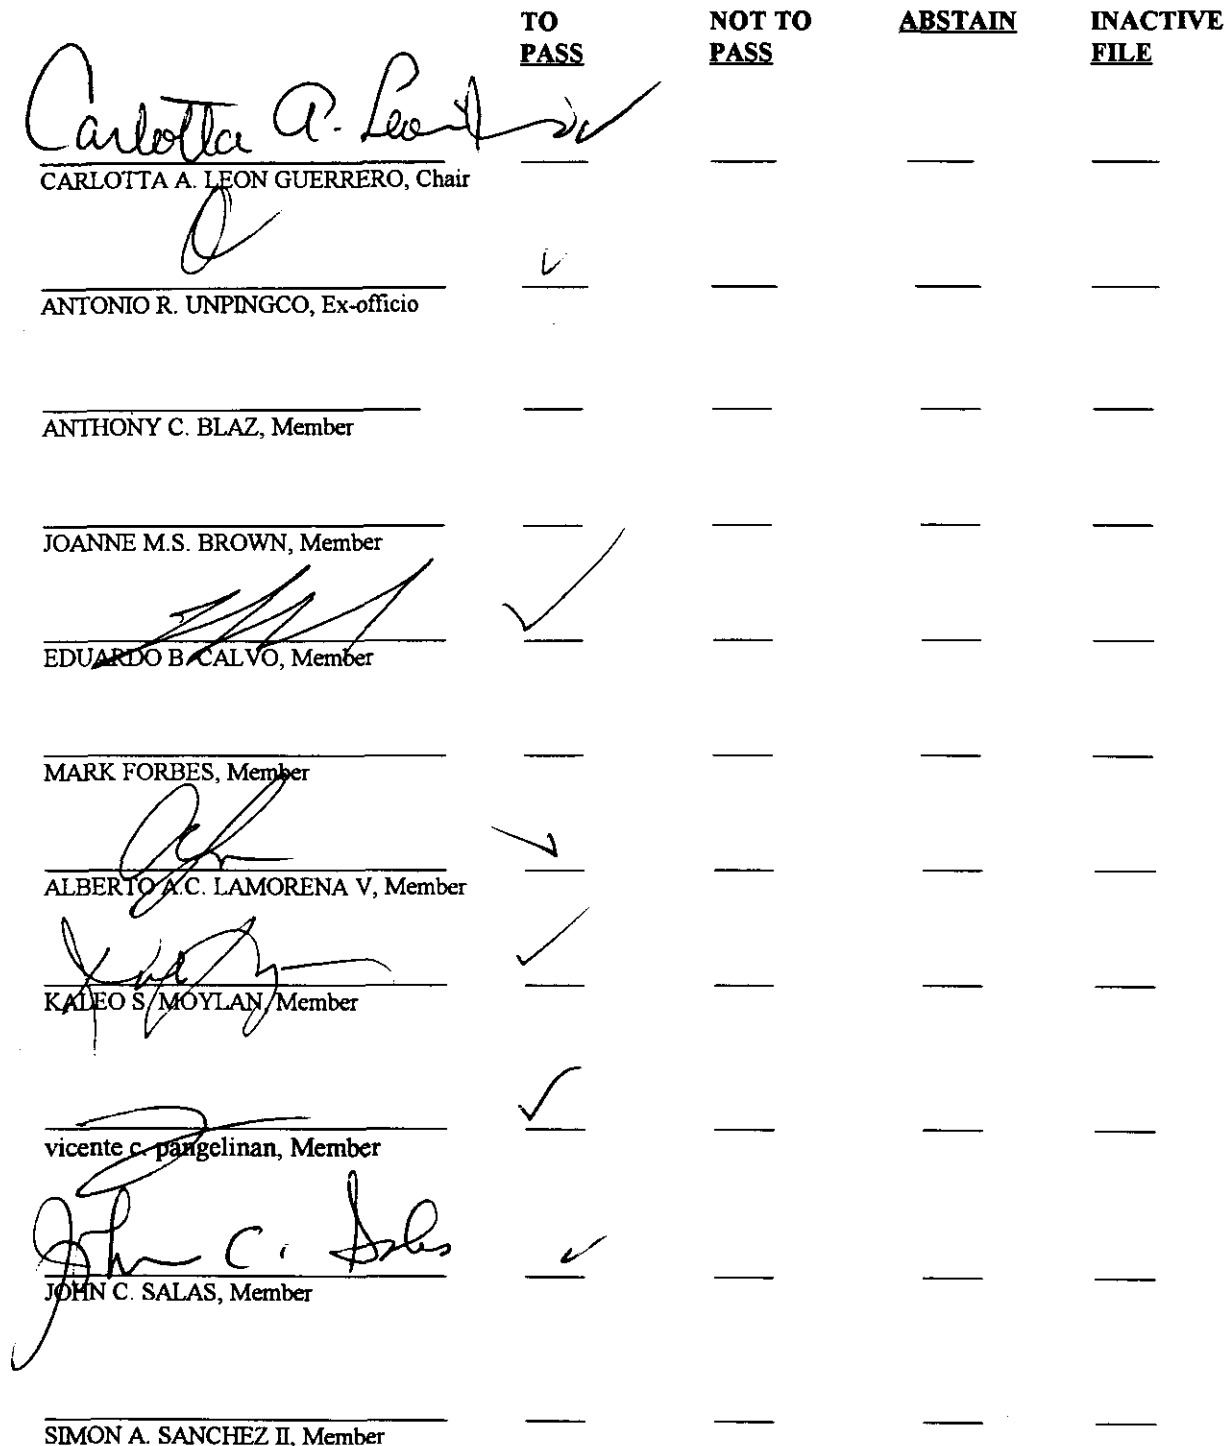 TO NOT TO ABSTAIN INACTIVE
PASS PASS FILE
Carlotta A. Leon
CARLOTTA A. LEON GUERRERO, Chair
ANTONIO R. UNPINGCO, Ex-officio
ANTHONY C. BLAZ, Member
JOANNE M.S. BROWN, Member
EDUARDO B. CALVO, Member
MARK FORBES, Member
ALBERTO A.C. LAMORENA V, Member
KALEO S. MOYLAN, Member
vicente c. pangelinan, Member
John C. Salas
JOHN C. SALAS, Member
SIMON A. SANCHEZ II, Member